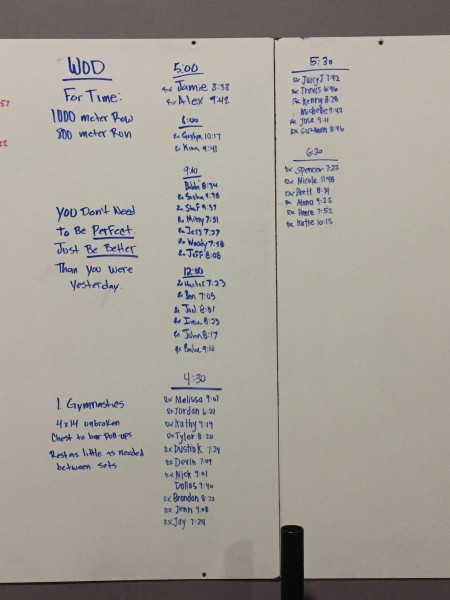 WOD
For Time:
1000 meter Row
800 meter Run
You Don't Need
To Be Perfect
Just Be Better
Than You Were
Yesterday.
1. Gymnastics
4x14 unbroken
Chest to bar Pull-ups
Rest as little as needed
between sets
5:00
Rx Jamie 8:38
Rx Alex 9:42
10:17
Rx Kim 9:41
Bobbi 8:34
Rx Missy 7:51
Rx Jerry 7:37
Rx Woody 7:48
Rx Jeff 8:08
12:00
Rx Hunter 7:23
Rx Ben 7:03
8:51
8:23
Rx John 8:17
4:30
Rx Melissa 9:07
Rx Jordan 6:21
Rx Kathy 9:19
Rx Tyler 8:20
Rx Dustin K 7:24
Rx Devin 7:09
Rx Nick 9:01
Dallas 9:40
Rx Brandon 8:22
Rx Jenn 9:08
Rx Jay 7:24
5:30
Rx Juicy J 7:42
Rx Travis 6:46
Rx Kenny 8:28
Michelle 9:42
Rx Jose 9:11
Rx Guzman 8:46
6:30
Rx Spencer 7:33
Rx Nicole 11:48
Rx Brett 8:14
Rx Alana 9:25
7:52
Rx Katie 10:15